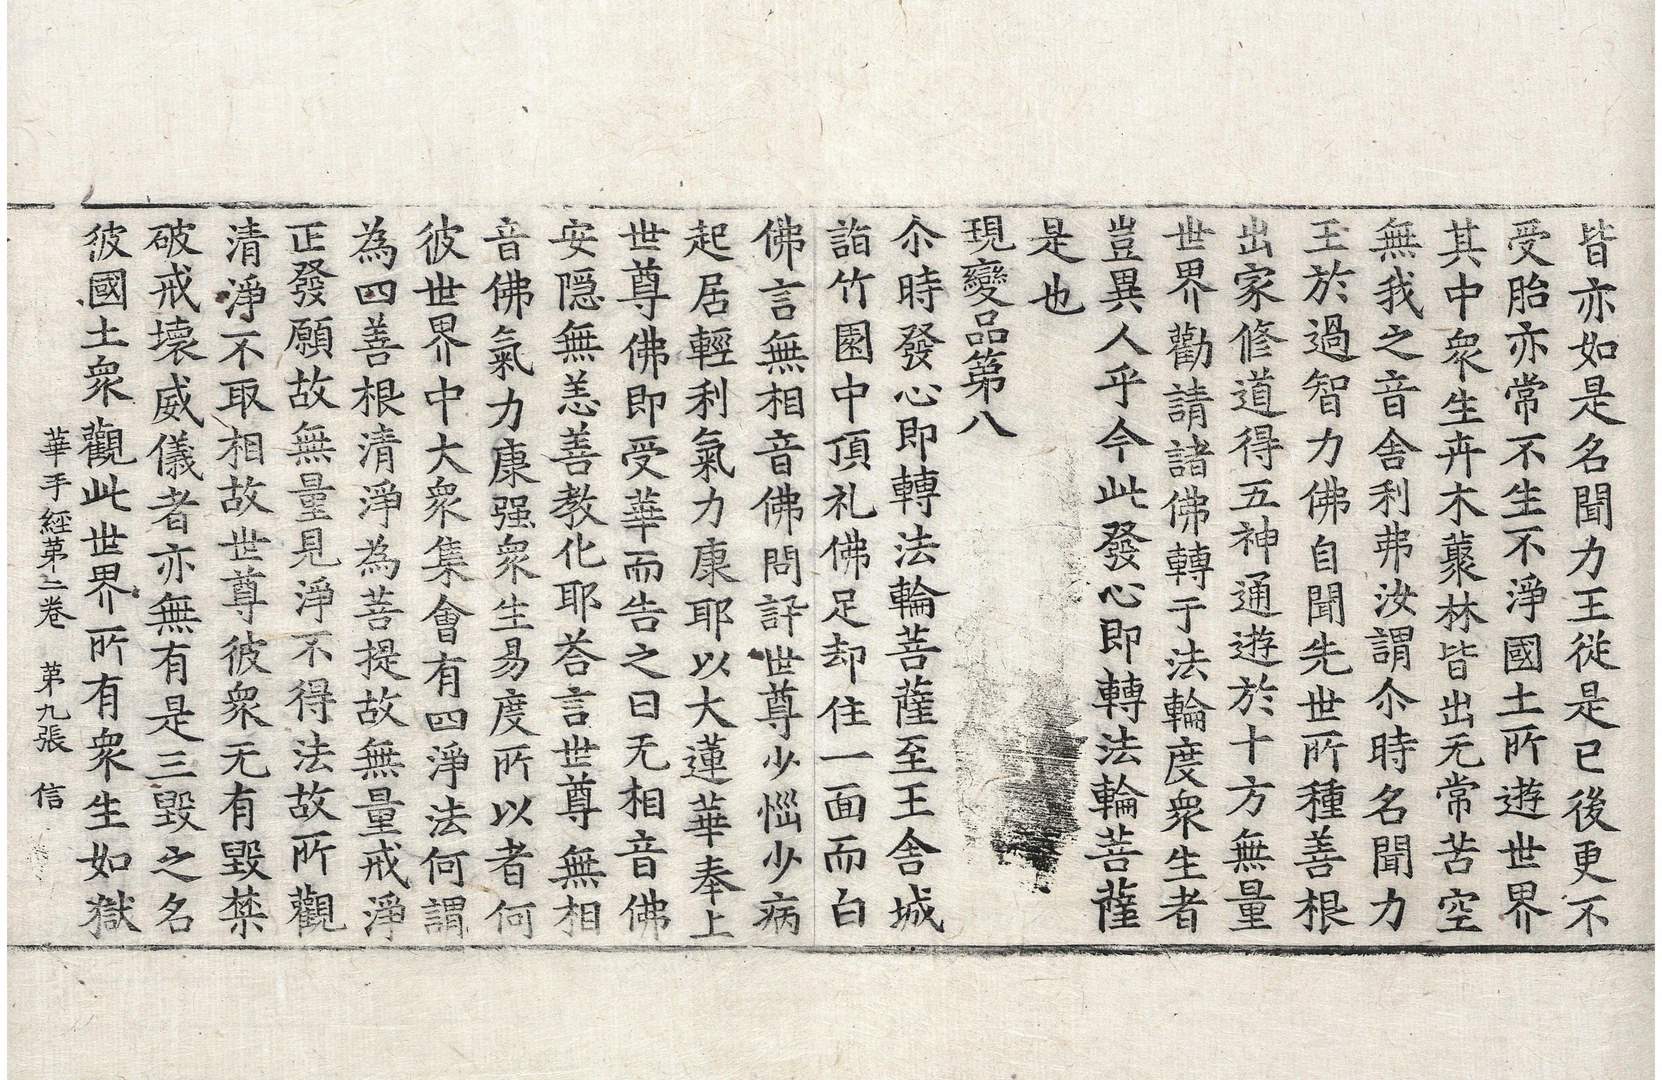 皆亦如是名聞力王従是已後更不
受胎亦常不生不淨國土所遊世界
其中衆生卉木藂林皆出无常苦空
無我之音舍利弗汝謂尒時名聞力
王於過智力佛自聞先世所種善根
出家修道得五神通遊於十方無量
世界勸請諸佛轉于法輪度衆生者
豈異人乎今此發心即轉法輪菩薩
是也
現變品第八
尒時發心即轉法輪菩薩至王舍城
詣竹園中頂礼佛足却住一面而白
佛言無相音佛問訊世尊少惱少病
起居輕利氣力康耶以大蓮華奉上
世尊佛即受華而告之曰无相音佛
安隱無恙善教化耶荅言世尊無相
音佛氣力康强衆生易度所以者何
彼世界中大衆集會有四淨法何謂
為四善根清淨為菩提故無量戒淨
正發願故無量見淨不得法故所觀
清淨不取相故世尊彼衆无有毀禁
破戒壞威儀者亦無有是三毀之名
彼國土衆觀此世界所有衆生如獄
華手經第二卷 第九張 信